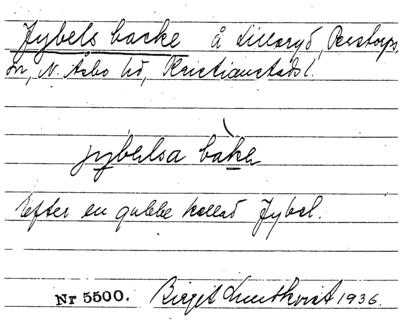 Jybels backe å Lillaryd, Perstorps
sn, N. Åsbo hd, Kristianstads l.
jybelsa bàkə
Efter en gubbe kallad Jybel.
Nr 5500. Birgit Lundkvist 1936.